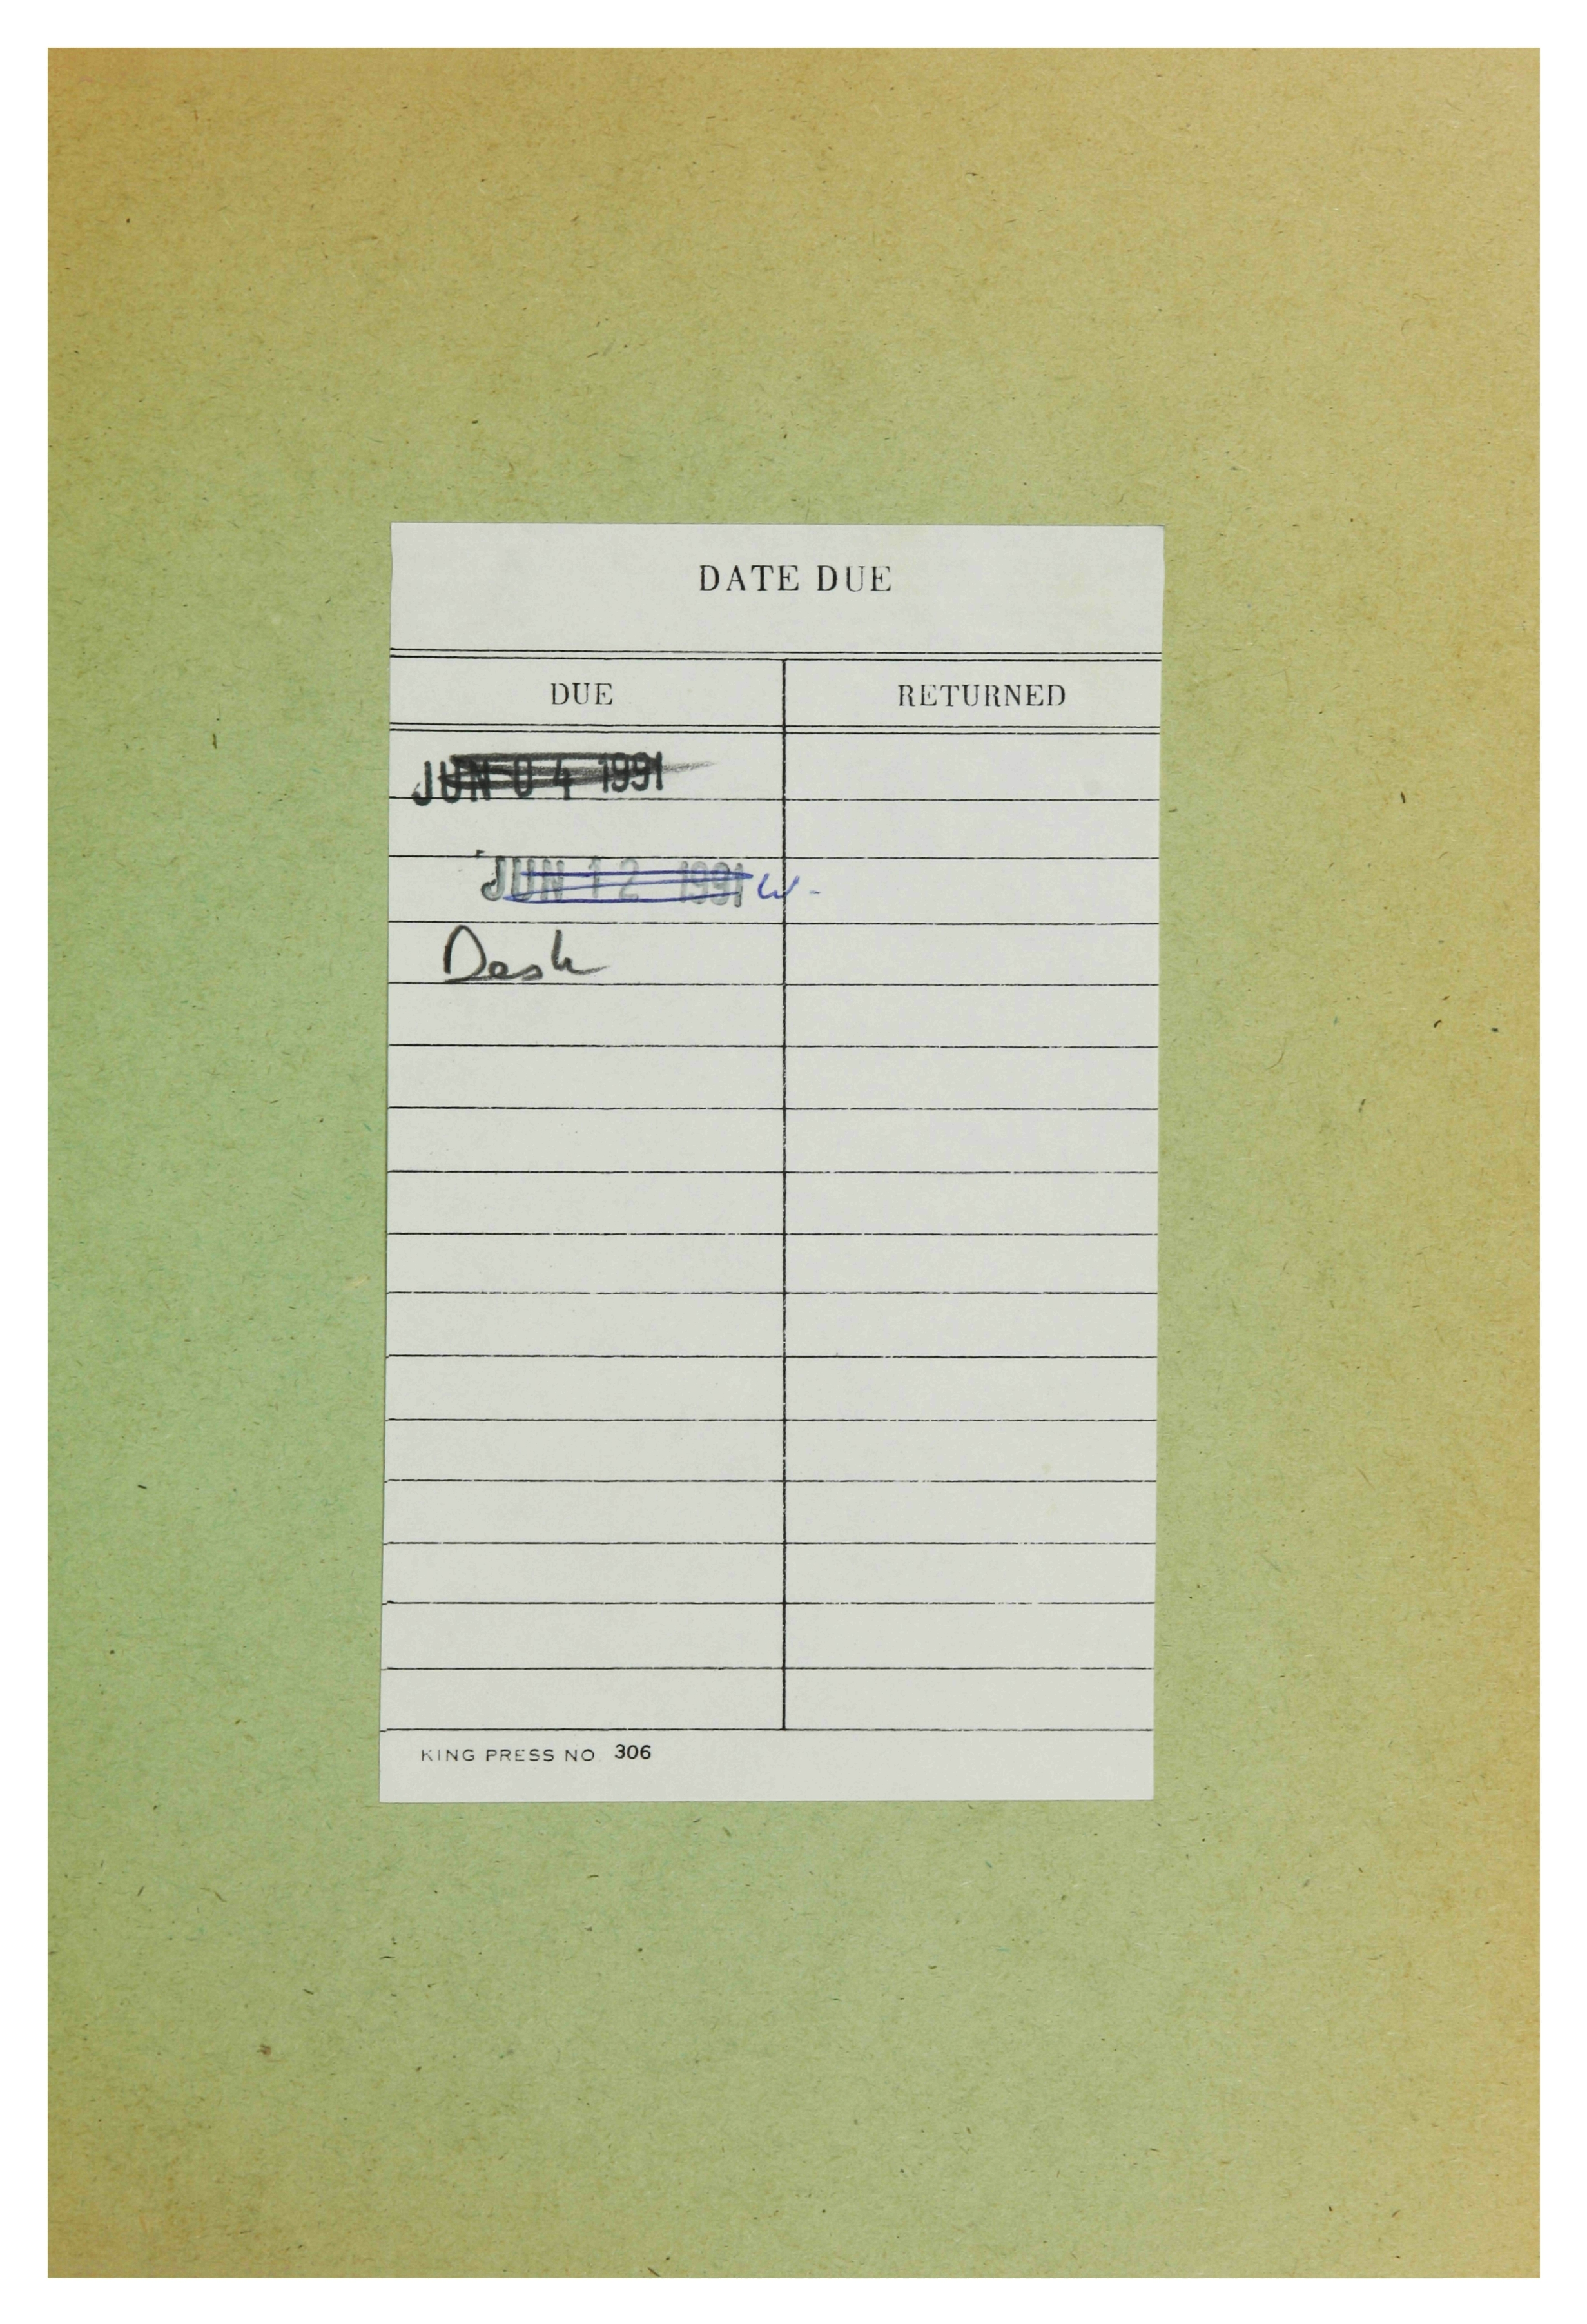 DATE DUE
DUE RETURNED
JUN 04 1991
JUN 12 1991
Desk
KING PRESS NO 306